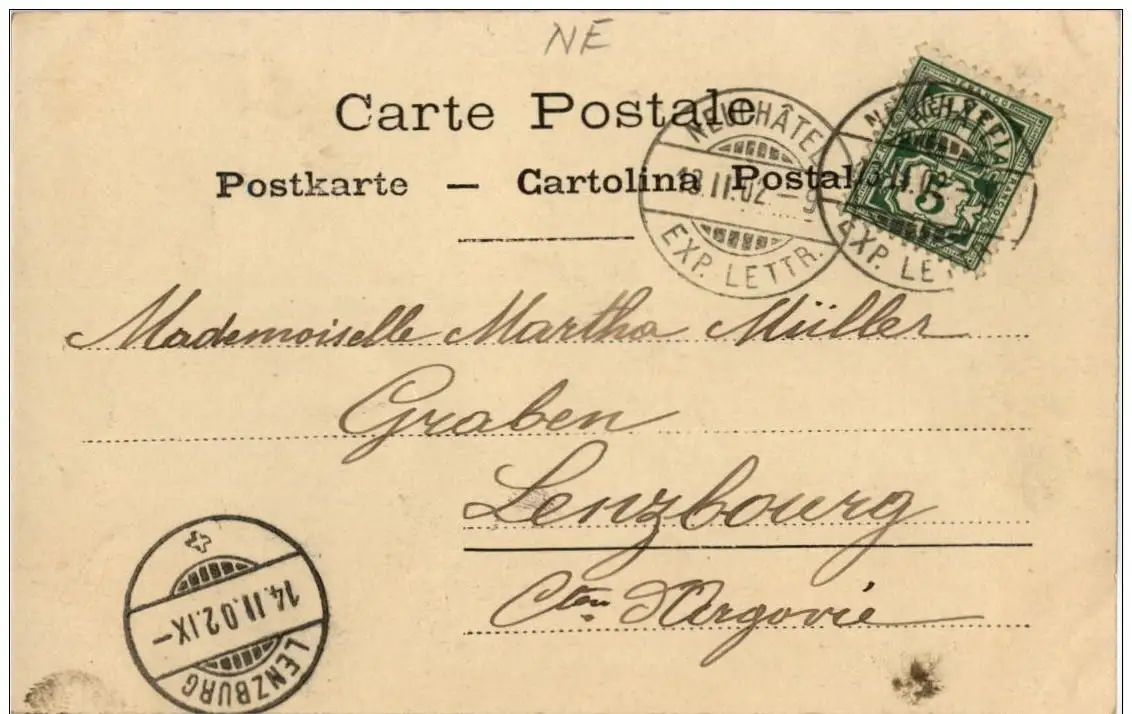 NE
Carte Postale
Postkarte — Cartolina Postale
NEUCHÂTEL
13.II.02.–9
EXP. LETTR.
NEUCHÂTEL
13.II.02.–9
EXP. LETTR.
FRANCO
HELVETIA
5
Mademoiselle Martha Müller
Graben
Lenzbourg
Cton d'Argovie
14.II.02.IX–
LENZBURG